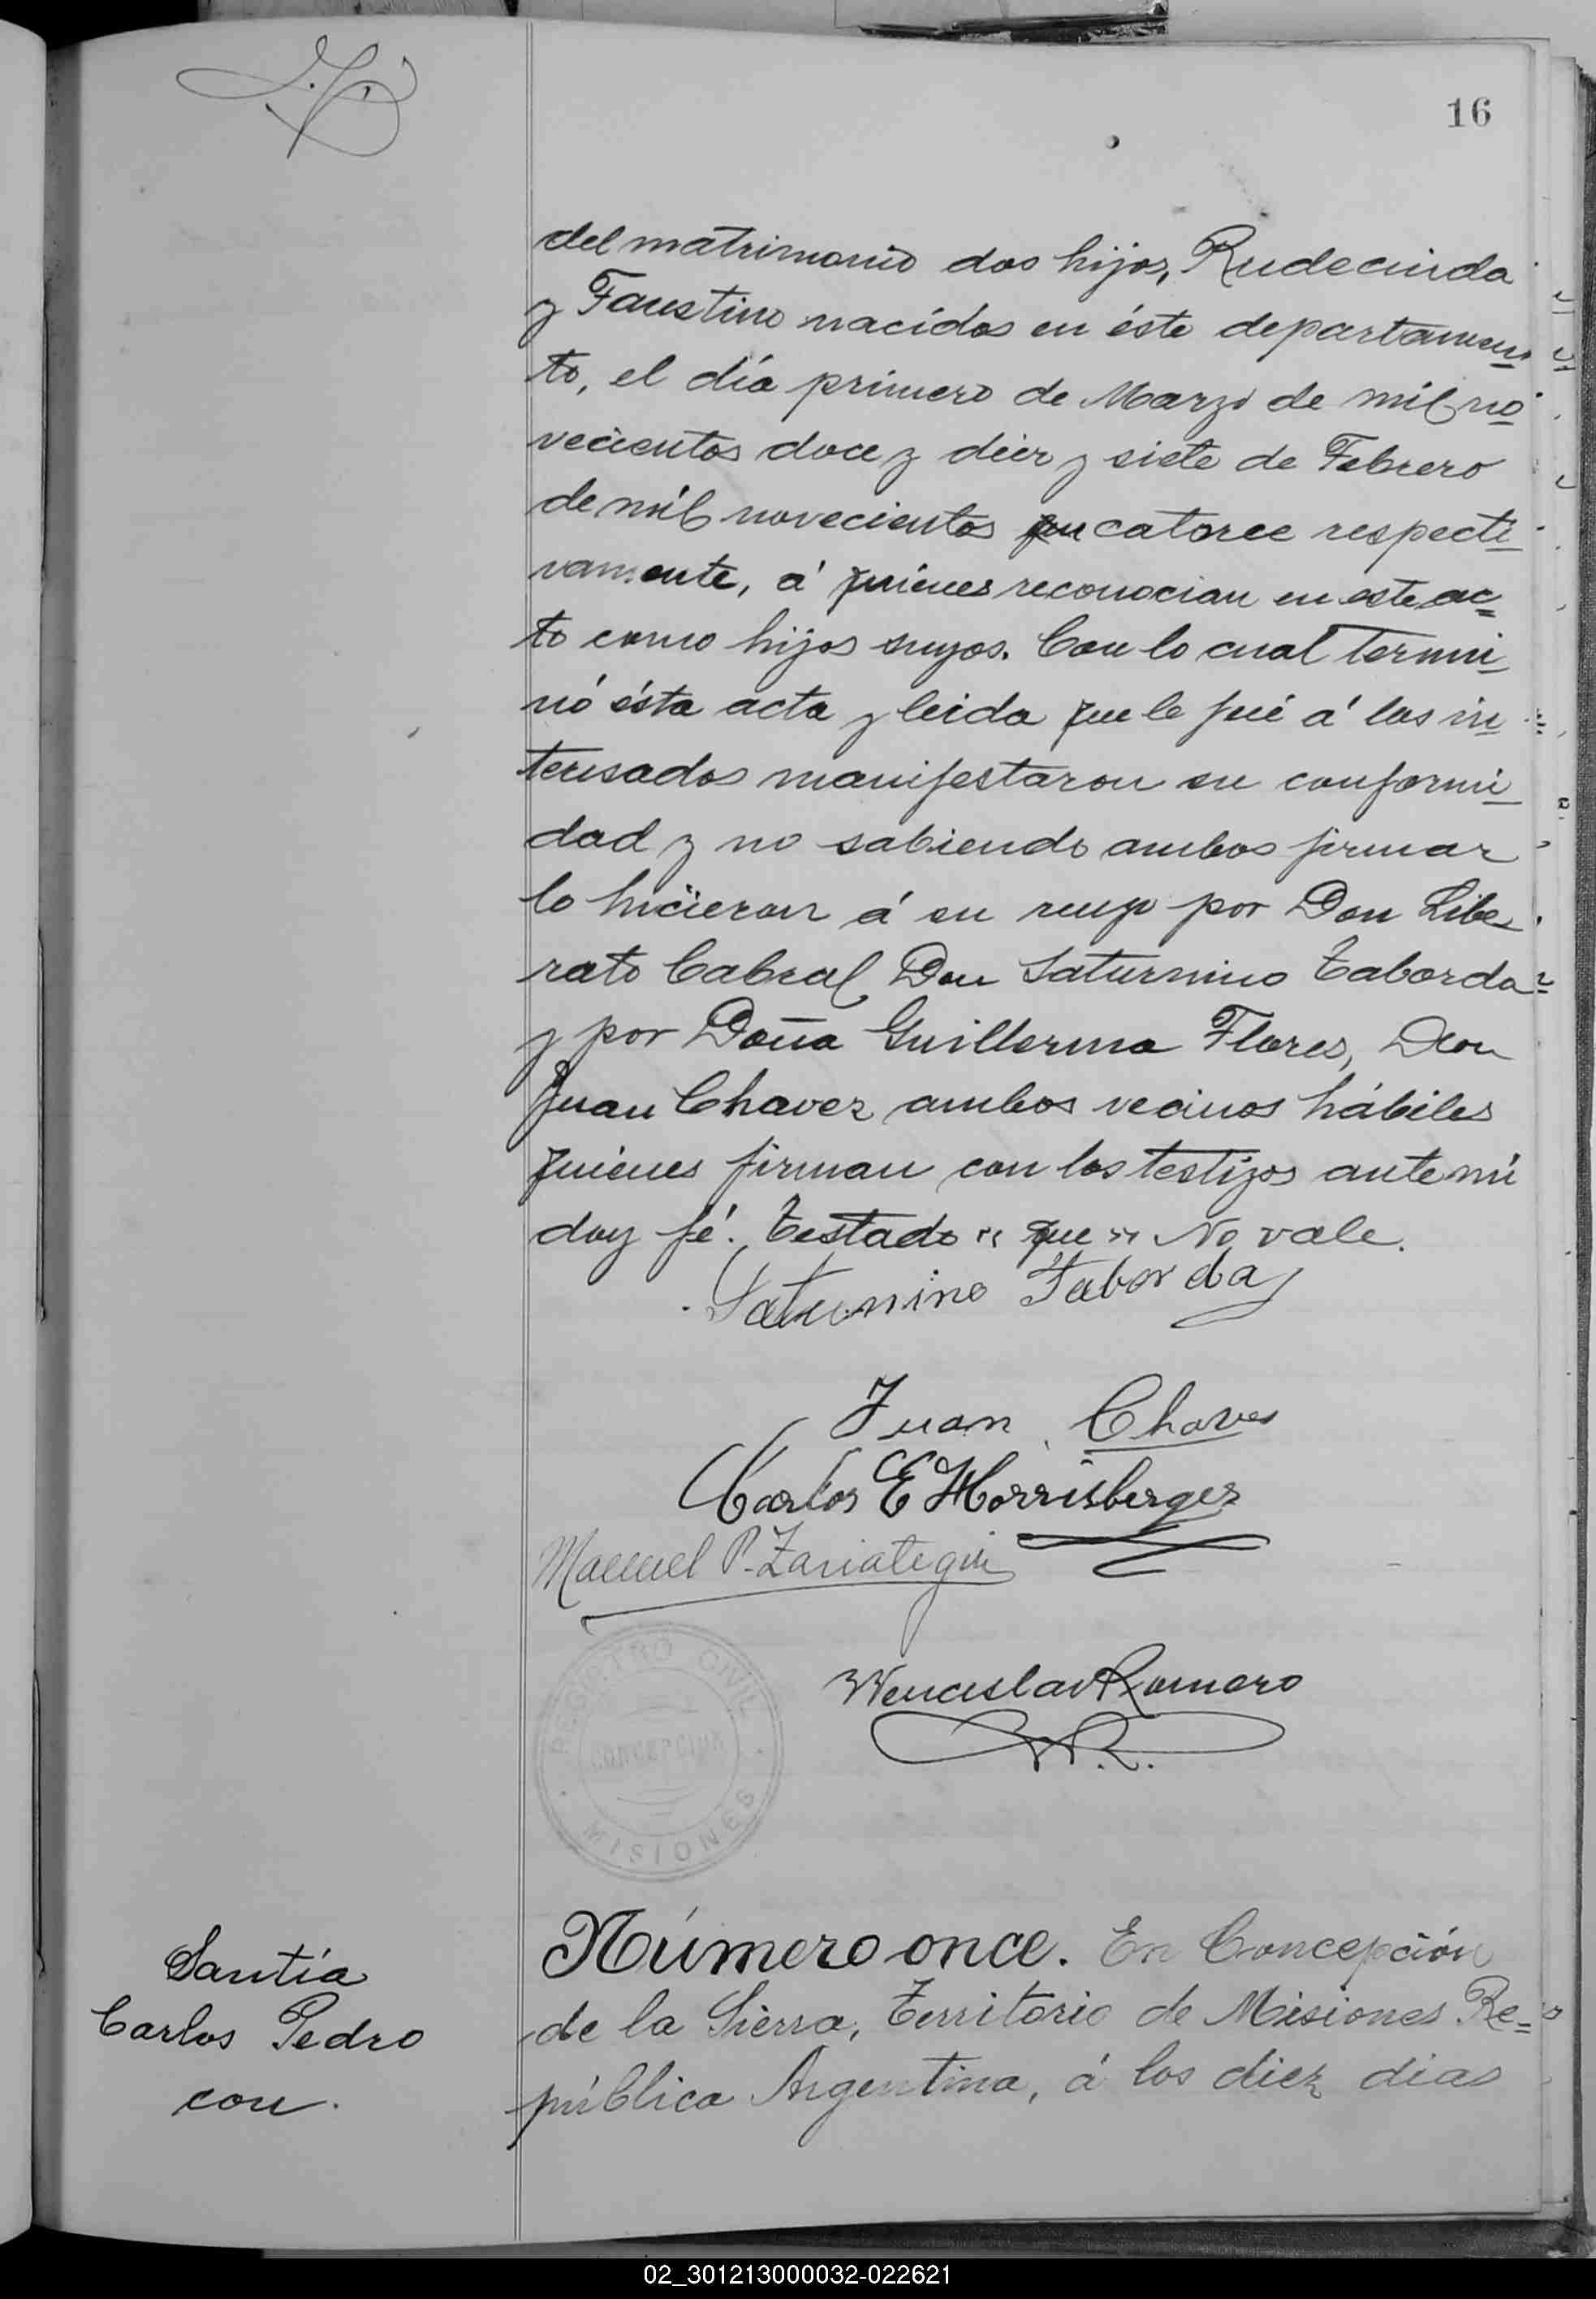 16
del matrimonio dos hijos, Rudecinda
y Faustino nacidos en éste departamen-
to, el día primero de Marzo de mil no-
vecientos doce y diez y siete de Febrero
de mil novecientos que catorce respecti-
vamente, á quiénes reconocian en este ac=
to como hijos suyos. Con lo cual termi-
nó ésta acta y leida que le fué á los in-
teresados manifestaron su conformi-
dad y no sabiendo ambos firmar
lo hicieron á su ruego por Don Libe-
rato Cabral Don Saturnino Taborda=
y por Doña Guillerma Flores, Don
Juan Chavez ambos vecinos hábiles
quiénes firman con los testigos ante mí
doy fé. Testado "que" No vale.
Saturnino Taborda
Juan Chaves
Carlos E Horrisberger
Manuel P. Zariategui
REGISTRO CIVIL
CONCEPCION
MISIONES
Wenceslao Romero
W.R.
Santía
Carlos Pedro
con.
Número once. En Concepción
de la Sierra, Territorio de Misiones Re=
pública Argentina, á los diez dias
02_301213000032-022621